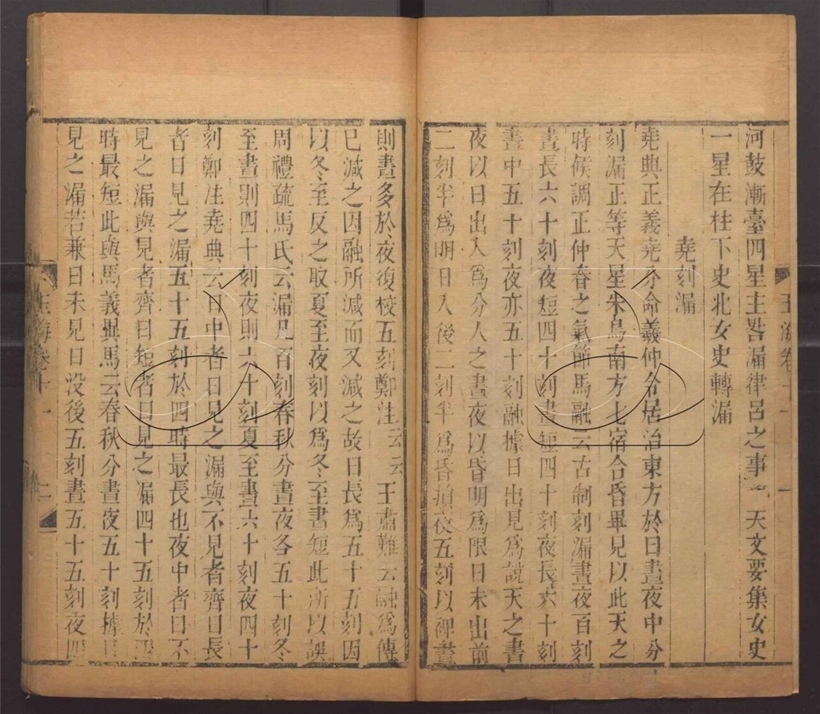 河鼓漸臺四星主晷漏律呂之事 天文要集女史
一星在柱下史北女史轉漏
堯刻漏
堯典正義堯分命羲仲令居治東方於日晝夜中分
刻漏正等天星朱鳥南方七宿合昏畢見以此天之
時候調正仲春之氣節馬融云古制刻漏晝夜百刻
晝長六十刻夜短四十刻晝短四十刻夜長六十刻
晝中五十刻夜亦五十刻融據日出見為說天之晝
夜以日出入為分人之晝夜以昏明為限日未出前
二刻半為明日入後二刻半為昏損夜五刻以裨晝
玉海卷十一 一
則晝多於夜復校五刻鄭注云云王肅難云融為傳
已減之因融所減而又減之故日長為五十五刻因
以冬至反之取夏至夜刻以為冬至晝短此所以誤
周禮疏馬氏云漏凡百刻春秋分晝夜各五十刻冬
至晝則四十刻夜則六十刻夏至晝六十刻夜四十
刻鄭注堯典云日中者日見之漏與不見者齊日長
者日見之漏五十五刻於四時最長也夜中者日不
見之漏與見者齊日短者日見之漏四十五刻於四
時最短此與馬義異馬云春秋分晝夜五十刻據日
見之漏若兼日未見日没後五刻晝五十五刻夜四
玉海卷十一 二